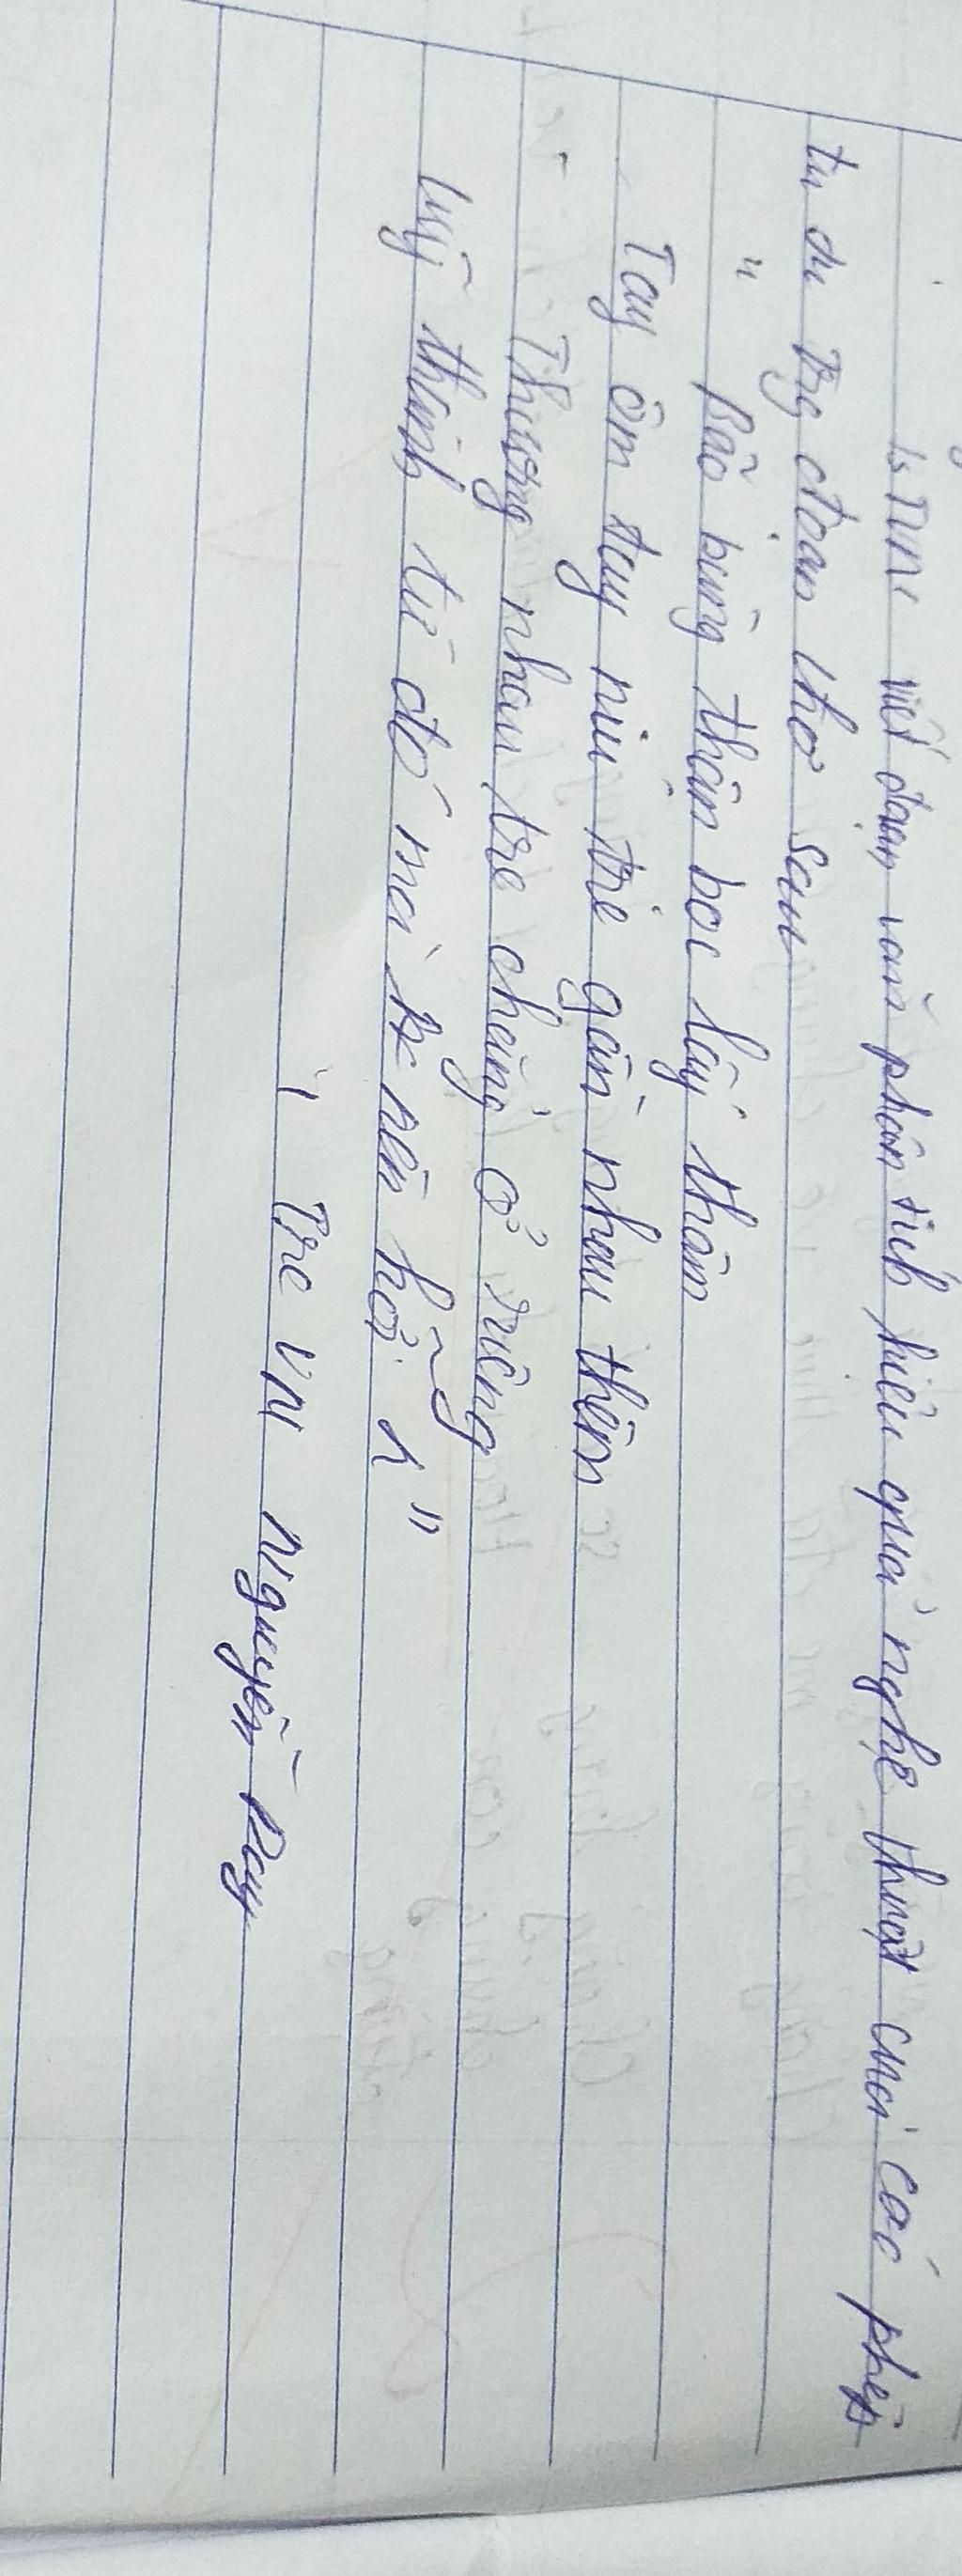 viết đoạn văn phân tích hiệu quả nghệ thuật của các phép
tu từ trg đoạn thơ sau
" Bão bùng thân bọc lấy thân
Tay ôm tay níu tre gần nhau thêm
Thương nhau tre chẳng ở riêng
Luỹ thành từ đó mà nên hỡi "
Tre VN Nguyễn Duy